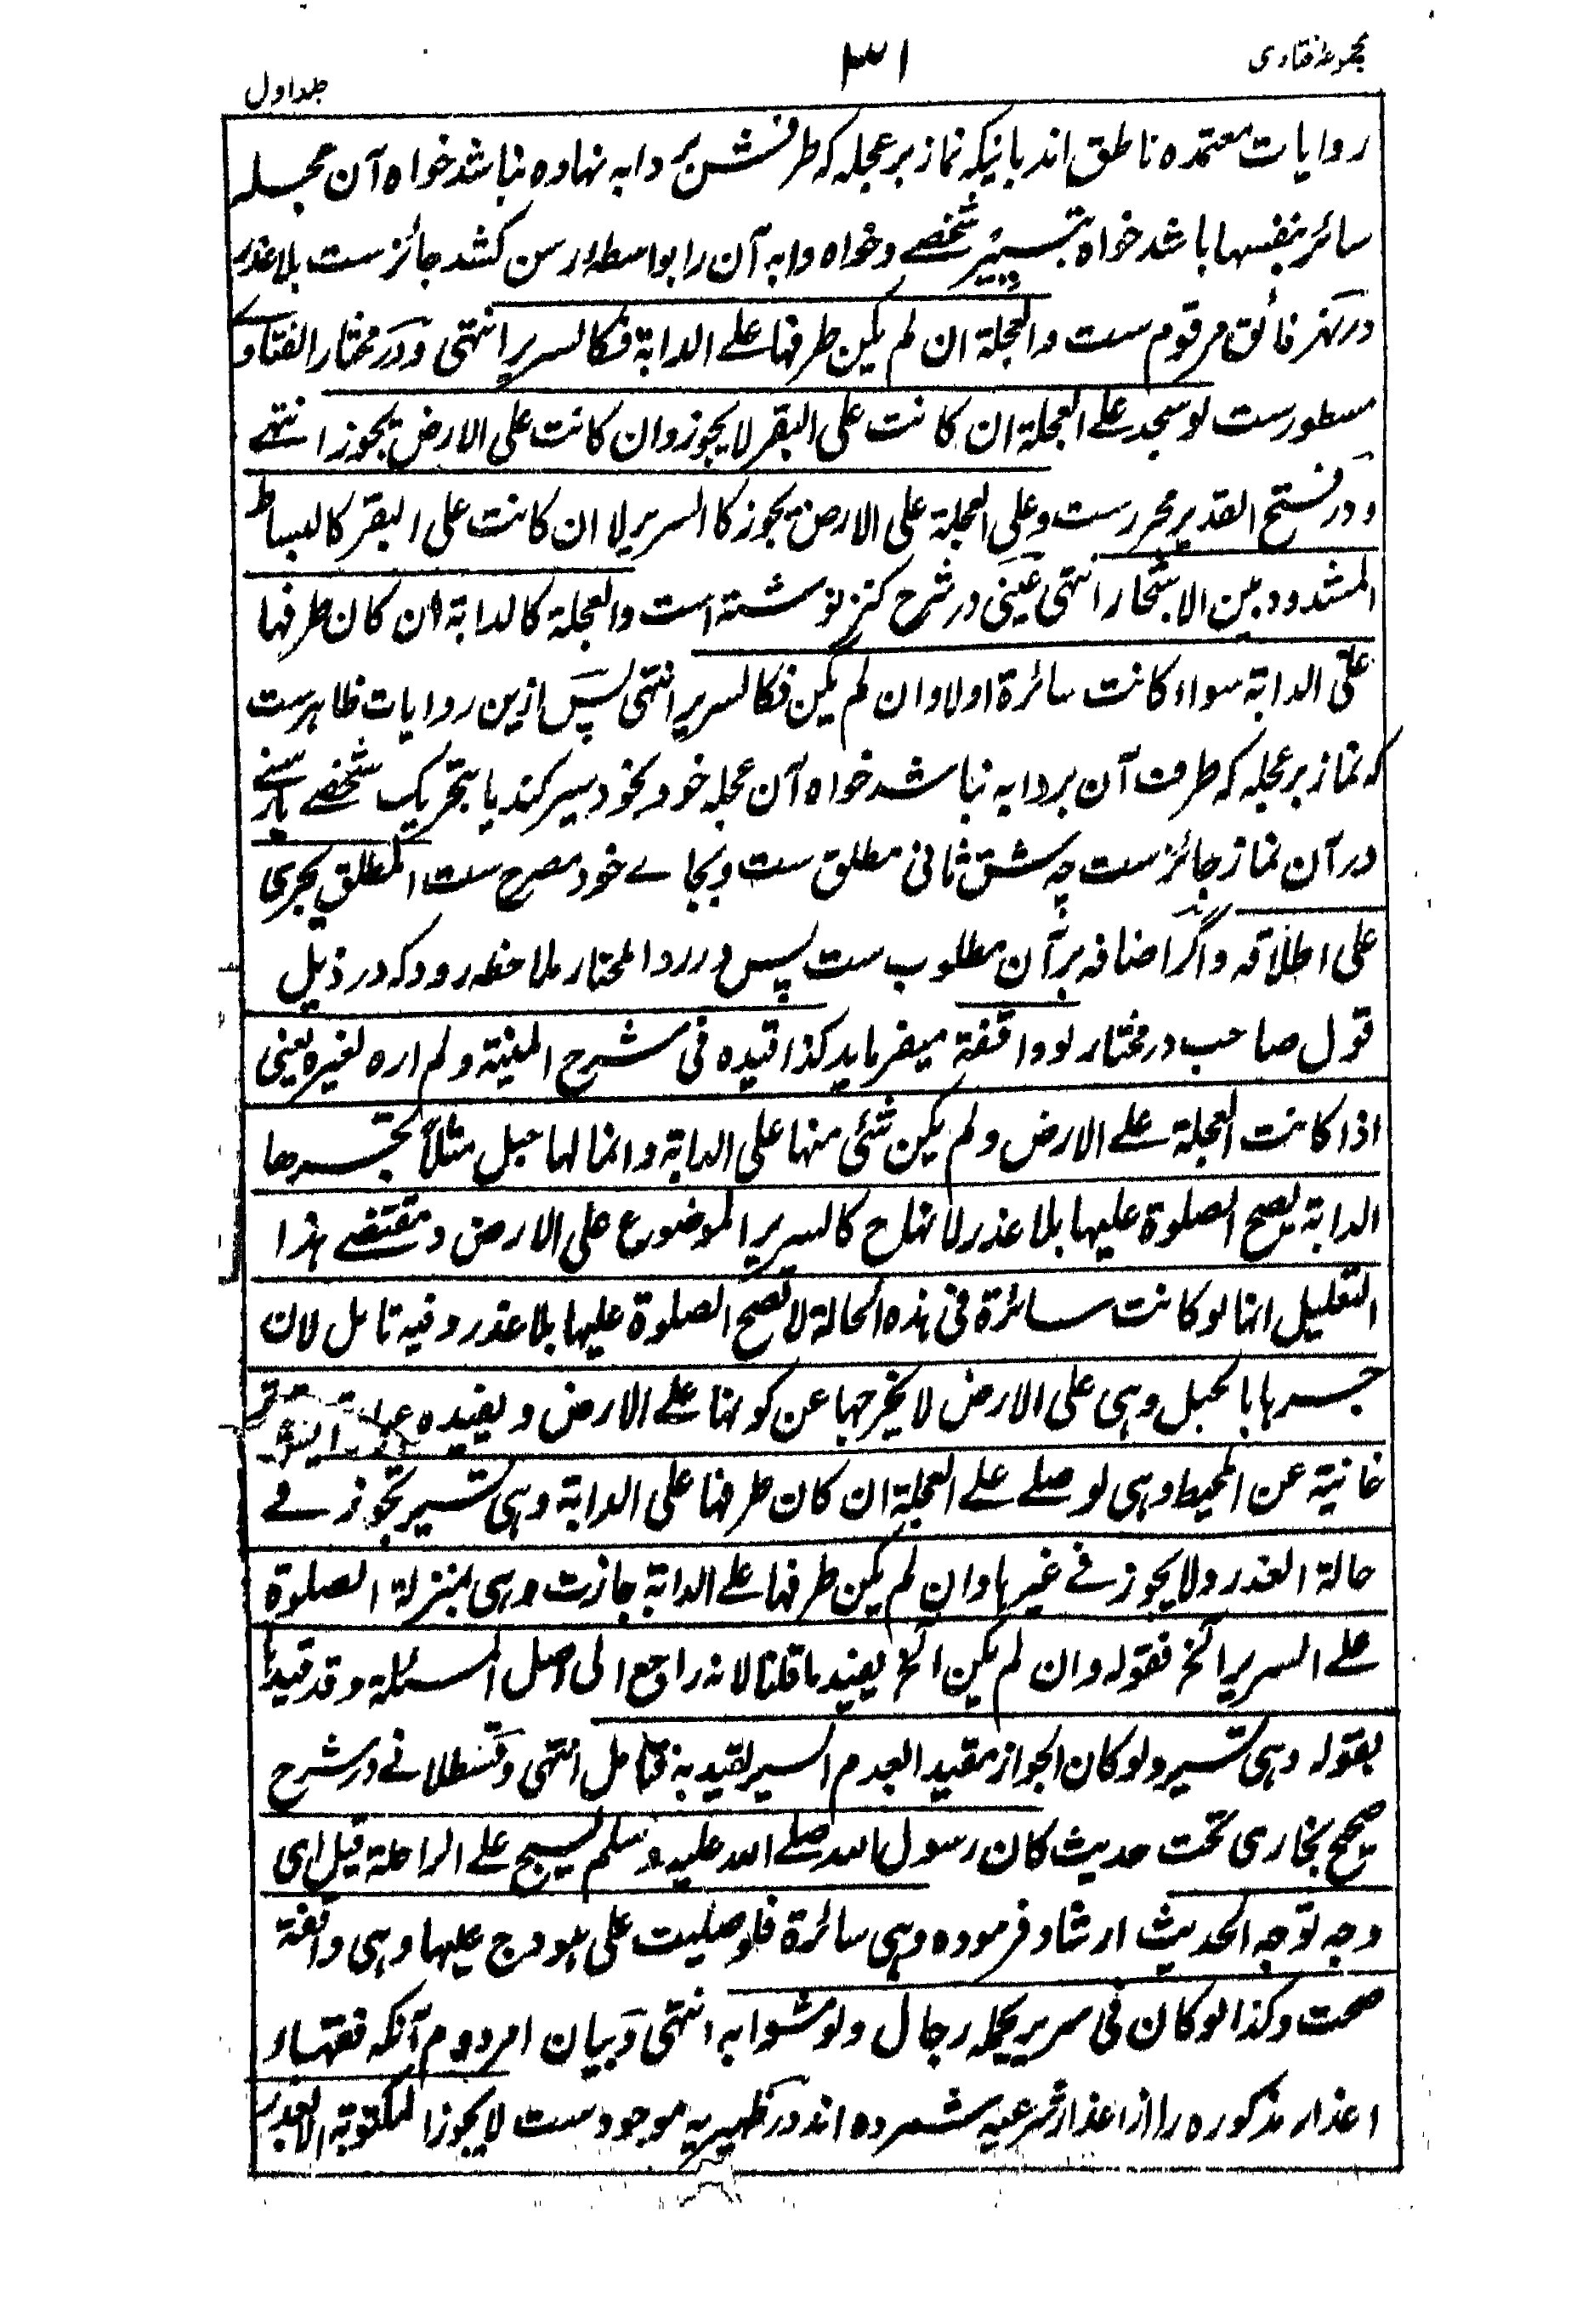 مجموعہ فتاوی
۳۱
جلد اول
روایات معتمدہ ناطق اند باینکہ نماز بر عجلہ کہ طرفش بر دابہ نہادہ نباشد خواہ آن عجلہ
سائر بنفسہا باشد خواہ بتسییر شخصے و خواہ دابہ آن را بواسطہ رسن کشد جائز ست بلا عذر
در نہر فائق مرقوم ست والعجلة ان لم یکن طرفہا علے الدابة فکالسریر انتہی و در مختار الفتاوے
مسطورست لو سجد علے العجلة ان کانت علی البقر لا یجوز وان کانت علی الارض یجوز انتہے
و در فتح القدیر محررست وعلی العجلة علی الارض یجوز کالسریر لا ان کانت علی البقر کالبساط
المشدود بین الاشجار انتہی عینی در شرح کنز نوشتہ است والعجلة کالدابة ان کان طرفہا
علی الدابة سواء کانت سائرة اولا وان لم یکن فکالسریر انتہی پس ازین روایات ظاہرست
کہ نماز بر عجلہ کہ طرف آن بر دابہ نباشد خواہ آن عجلہ خود بخود سیر کند یا بتحریک شخصے یا رسنے
در آن نماز جائز ست چہ شق ثانی مطلق ست و بجاے خود مصرح ست المطلق یجری
علی اطلاقہ و اگر اضافہ بر آن مطلوب ست پس در رد المحتار ملاحظہ رود کہ در ذیل
قول صاحب در مختار لو واقفة میفرماید کذا قیدہ فی شرح المنیة ولم ارہ لغیرہ یعنی
اذا کانت العجلة علے الارض ولم یکن شئی منہا علی الدابة وانما لہا حبل مثلاً تجرها
الدابة یصح الصلوة علیہا بلا عذر لانہا ح کالسریر الموضوع علی الارض و مقتضے ہذا
التعلیل انہا لو کانت سائرة فی ہذہ الحالة لا تصح الصلوة علیہا بلا عذر وفیہ تامل لان
جرہا بالحبل وہی علی الارض لا یخرجہا عن کونہا علے الارض ویفیدہ عبارة التتر
خانیة عن المحیط وہی لو صلے علے العجلة ان کان طرفہا علی الدابة وہی تسیر تجوز فے
حالة العذر ولا یجوز فے غیرہا وان لم یکن طرفہا علے الدابة جازت وہی بمنزلة الصلوة
علے السریر الخ فقولہ وان لم یکن الخ یفید ما قلنا لانہ راجع الی اصل المسئلة وقد قیدہا
بقولہ وہی تسیر ولو کان الجواز مقیدا بعدم السیر لقیدہ بہ فتامل انتہی و قسطلانے در شرح
صحیح بخاری تحت حدیث کان رسول اللہ صلے اللہ علیہ وسلم یسبح علے الراحلة قبل ای
وجہ توجہ الحدیث ارشاد فرمودہ وہی سائرة فلو صلیت علی ہودج علیہا وہی واقفة
صحت وکذا لو کان فی سریر یحملہ رجال ولو مشوا بہ انتہی و بیان امر دوم آنکہ فقہاء
اعذار مذکورہ را از اعذار شرعیہ شمردہ اند در ظہیریہ موجود ست لا یجوز المکتوبة الا بعذر